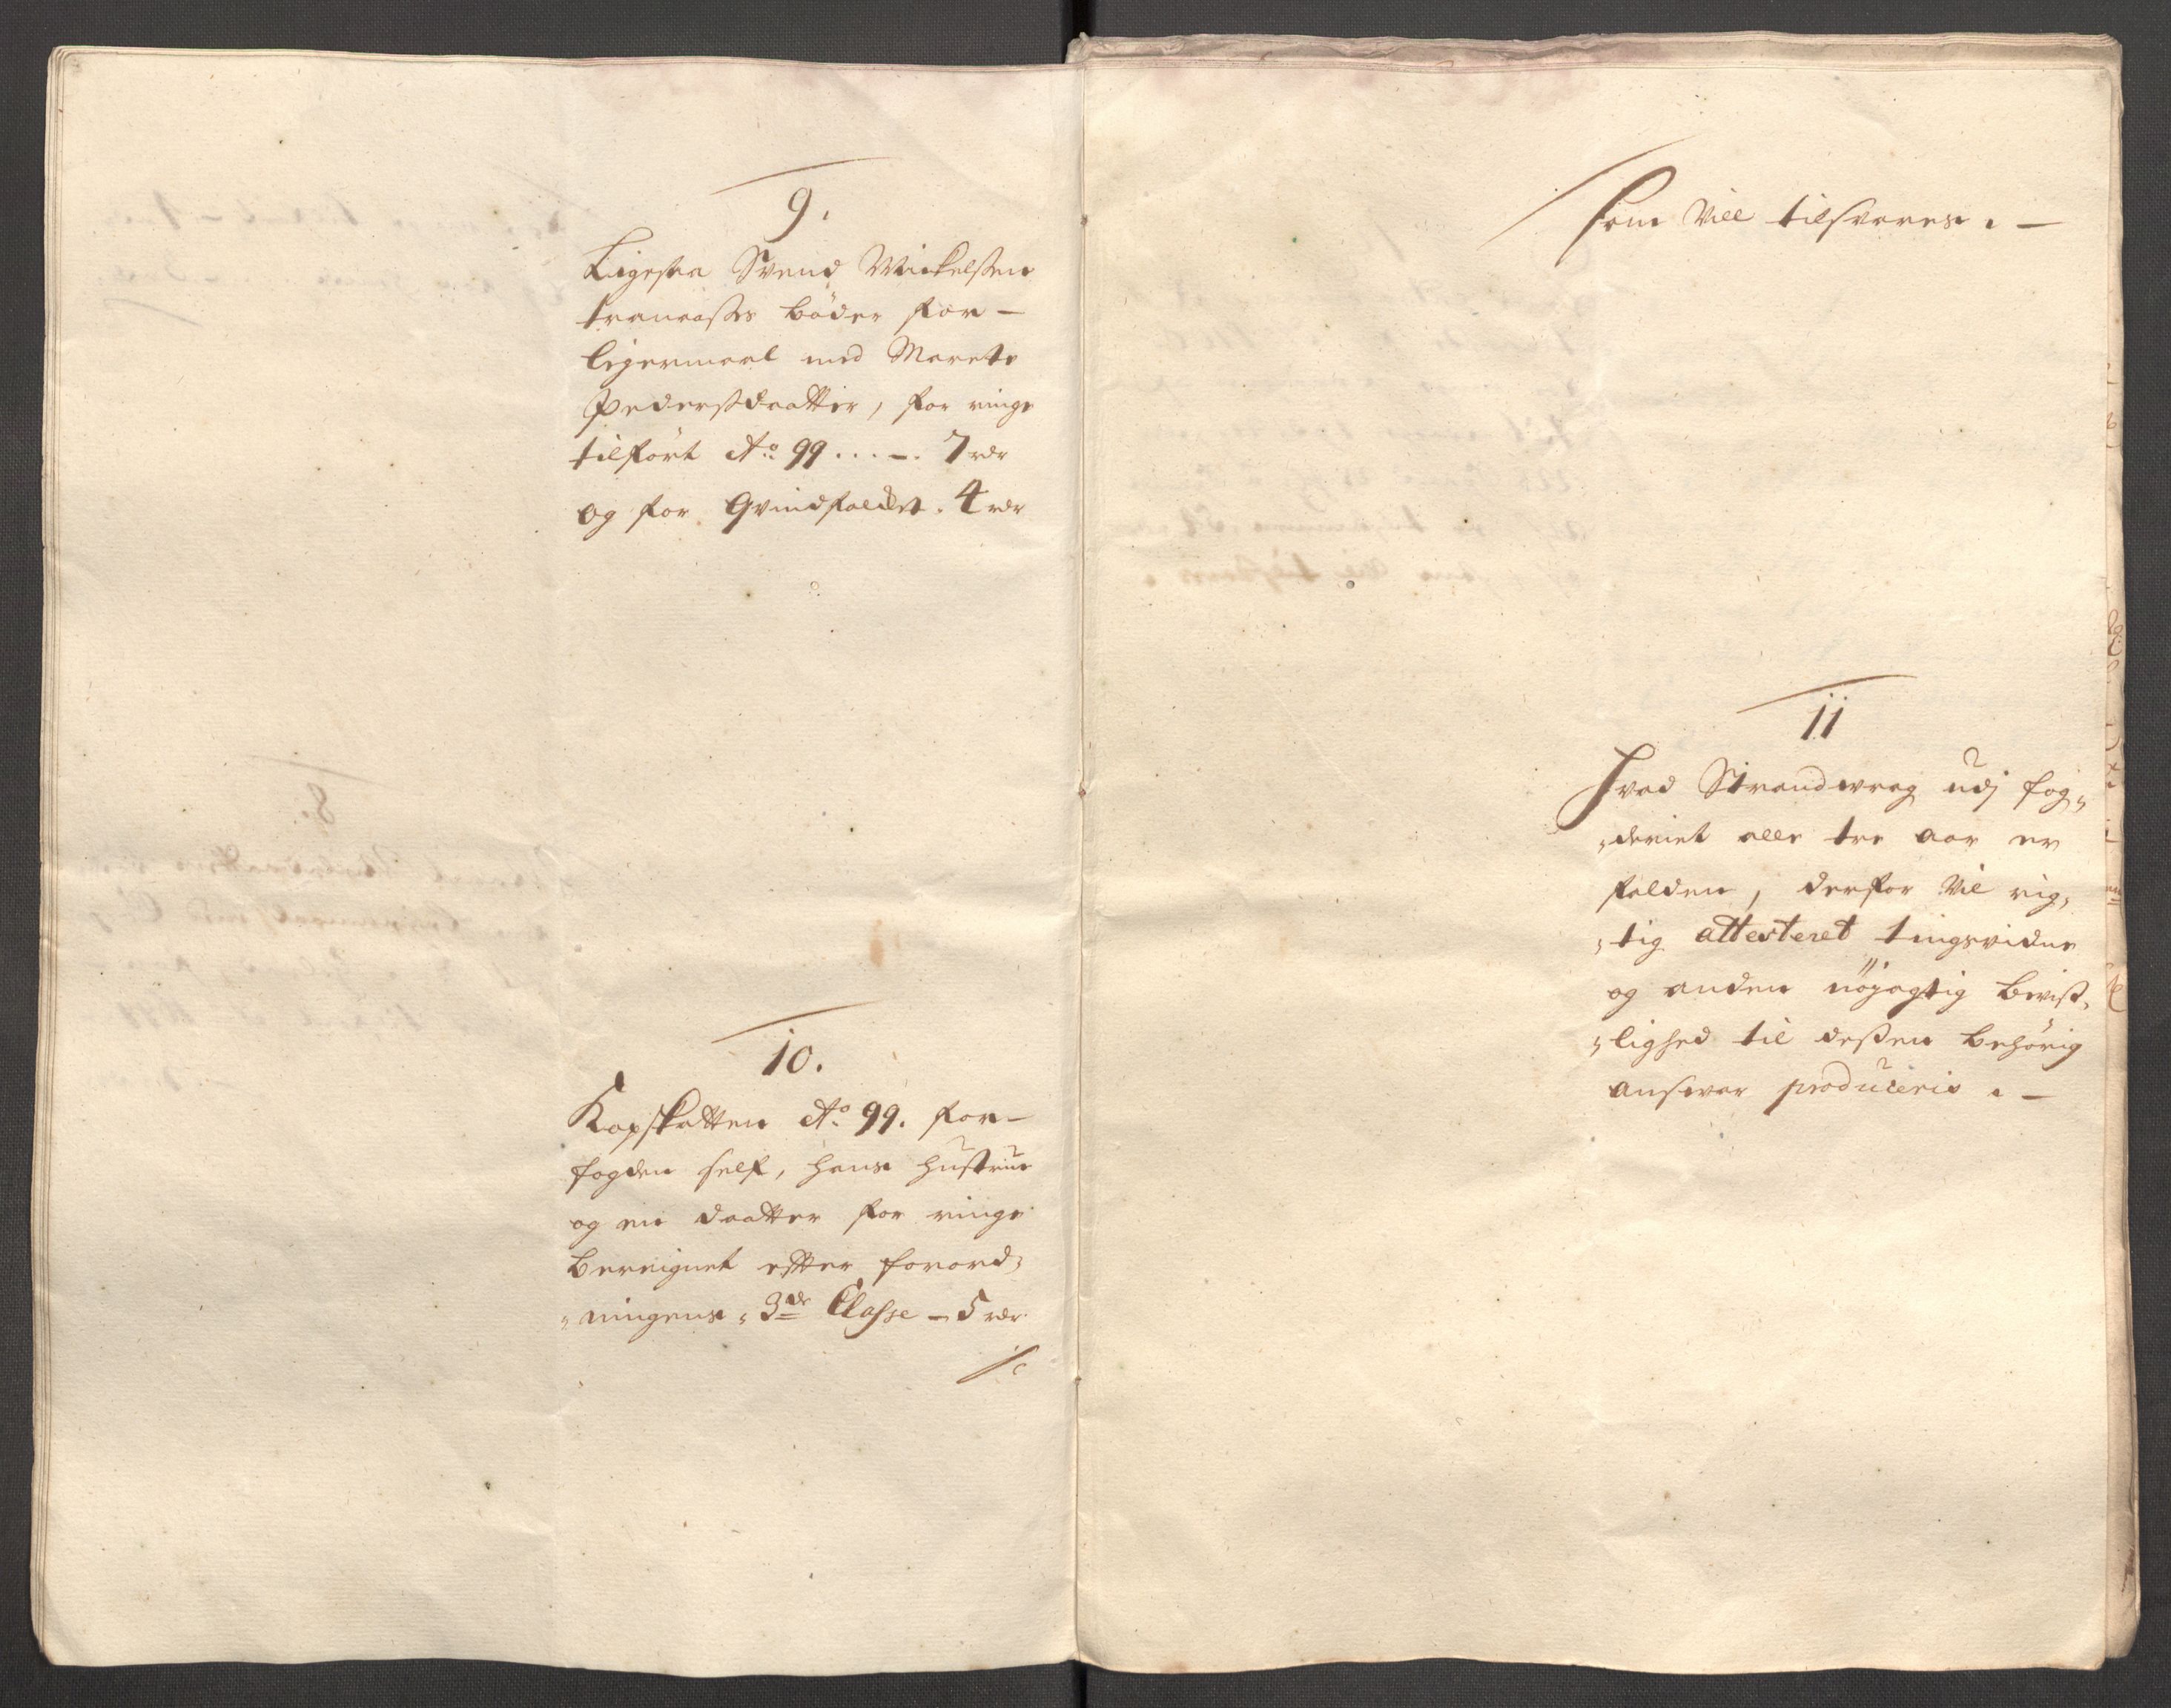 9.
Ligesaa Svend Mickelsen
tranaasses bøder for –
leyermaal med Marete
Pedersdaatter, for ringe
tilført Ao: 99 . . . –. 7 rdr
og for Qvindfolcket. 4 rdr
10.
Kopskatten Ao: 99. for –
fogden self, hans hustrue
og en daatter for ringe
bereignet efter forord„
„ningens „ 3de Classe – 5 rdr
/.
Som Vill tilsvares . –
11
Hvad Strandwrag udj fog„
„deriet alle tre aar er
falden, derfor Vil rig„
„tig attesteret tingsvidne
og anden nöyagtig beviß„
„lighed til deßen behörig
answar produceris . –